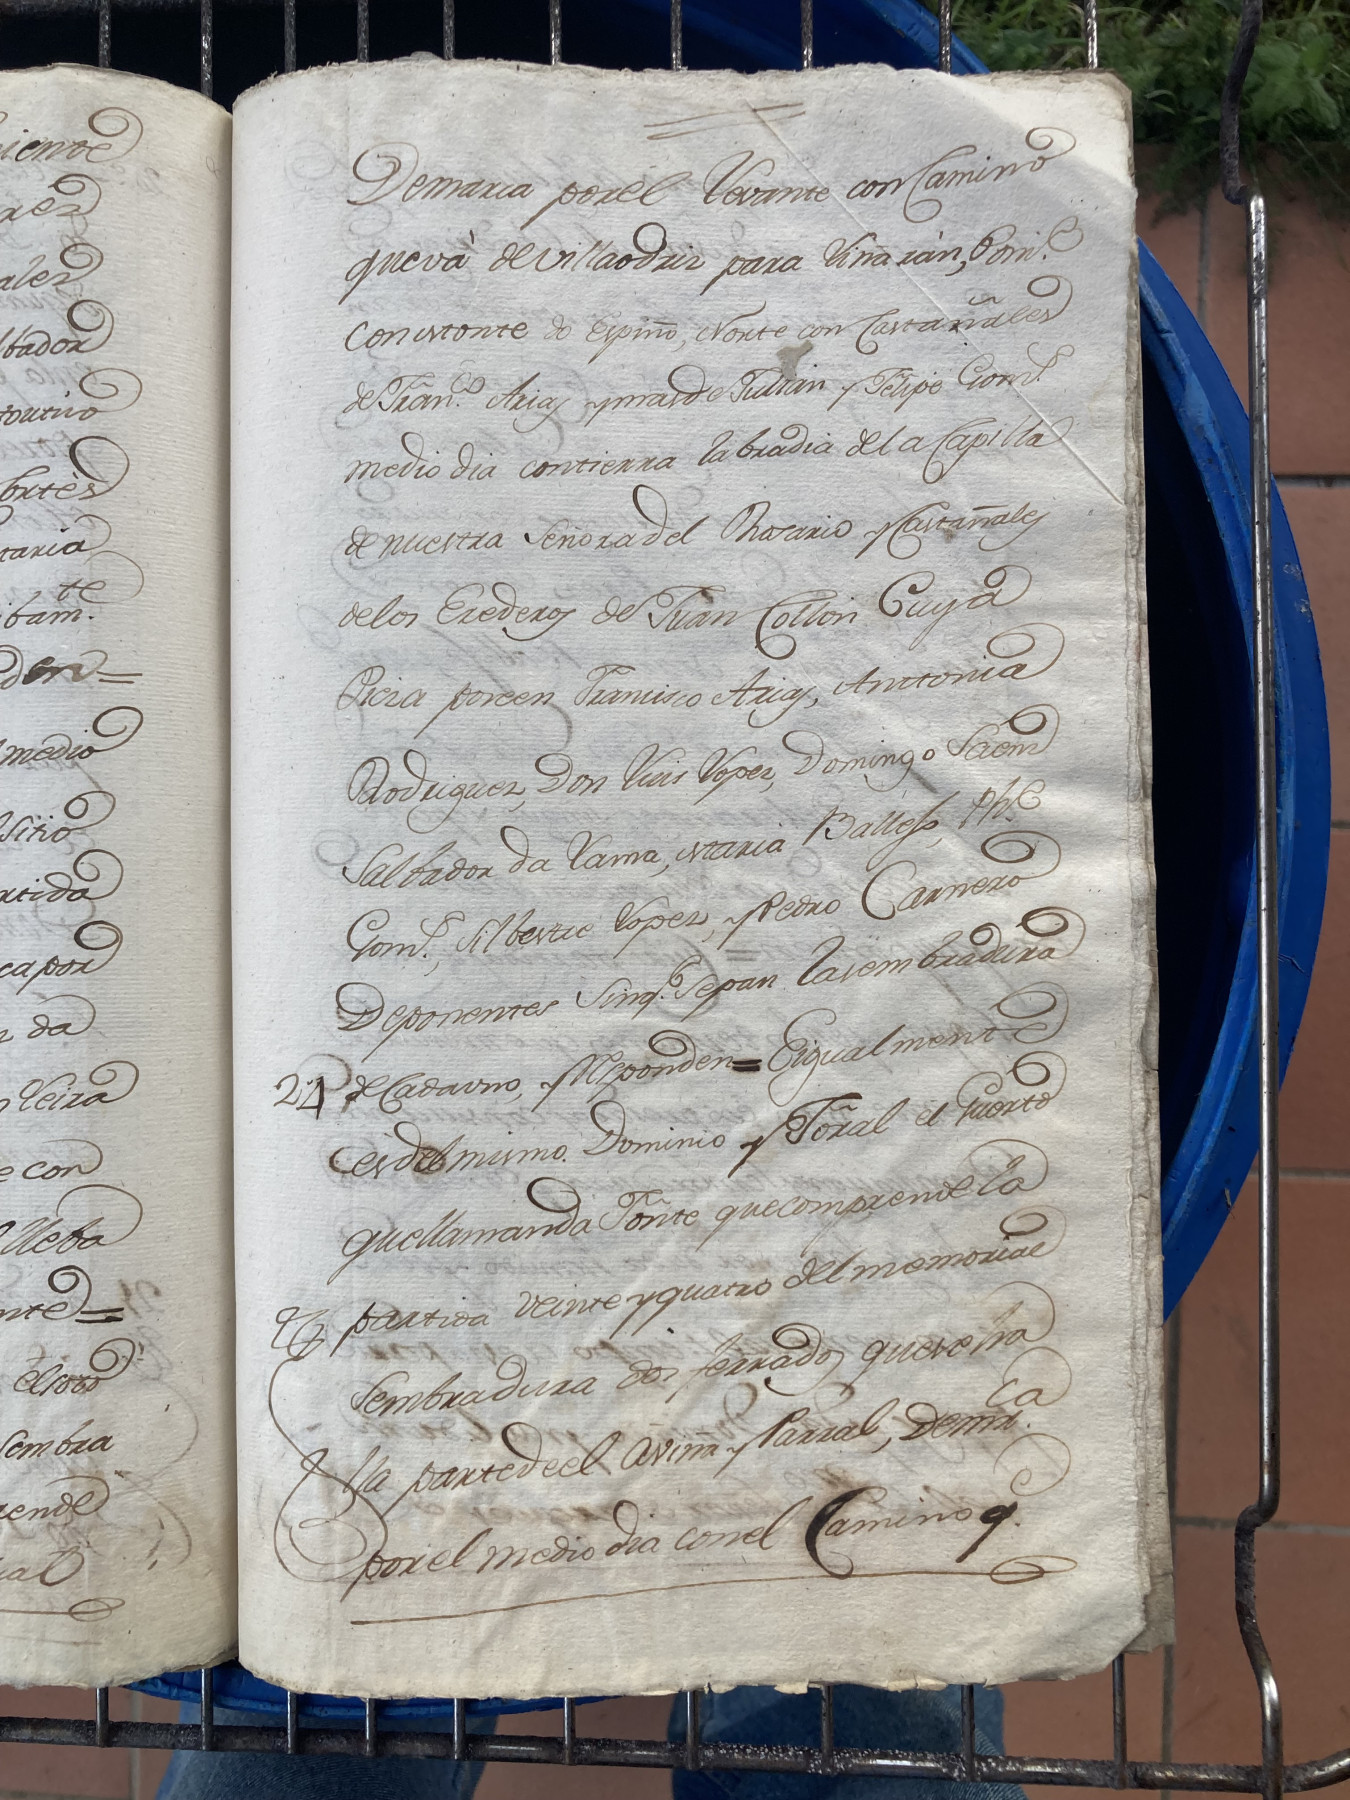 iente
rez
ales
lbador
toutivo
Cortès
taria
te
ibam.
den=
medio
Sitio
rtida
capor
n da
Veira
e con
lleba
nte=
elsoto
sembra
ende
ual
Demarca porel Levante con Camino
quevà de villaodriz para Viñarán, Poni.e
con monte do Espiño, Norte con Castañales
de Fran.co Arias y mas de Julian y Felipe Gom.z
medio dia contierra labradia del a Capilla
de nuestra Señora del Rosario y Castañales
delos Erederos de Juan Collon Cuya
Pieza poreen Francisco Arias, Anttonia
Rodriguez, Don Luis Lopez, Domingo Saem
Salbador da Lama, Maria Ballejo, Ph.e
Gom.z, Silbestre Lopez, y Pedro Carnero
Deponentes Sinq.e Sepan lasembradura
24 de Cadauno, y Responden= Eigualmente
es del mismo Dominio y Foral el Puerto
quellamanda Fonte que comprende la
partida veinte y quatro del memorial
Sembradura dos ferrados quese ha
lla parte de el aviña y Parral, Demr.ca
por el medio dia con el Camino q.e